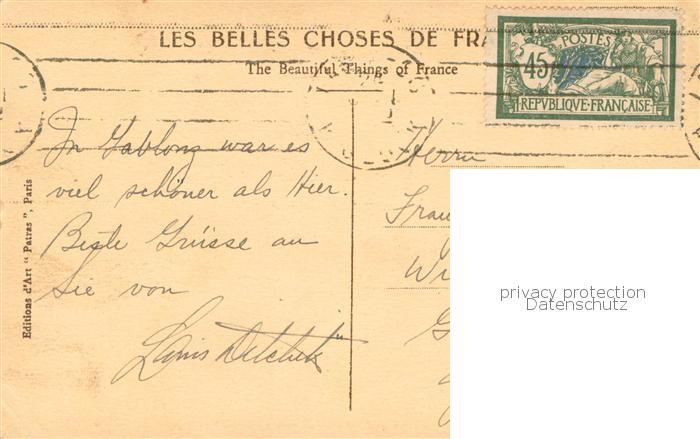 LES BELLES CHOSES DE FRA
The Beautiful Things of France
POSTES
45
REPVBLIQVE·FRANÇAISE
In Gablonz war es
viel schöner als Hier.
Beste Grüsse an
Sie von
Louis
Herrn
Fran
Wi
G
Editions d'Art "Patras", Paris
privacy protection
Datenschutz